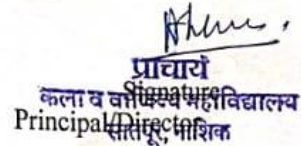 प्राचार्य
Signature
कला व वाणिज्य महाविद्यालय
Principal/Director
सातपूर, नाशिक